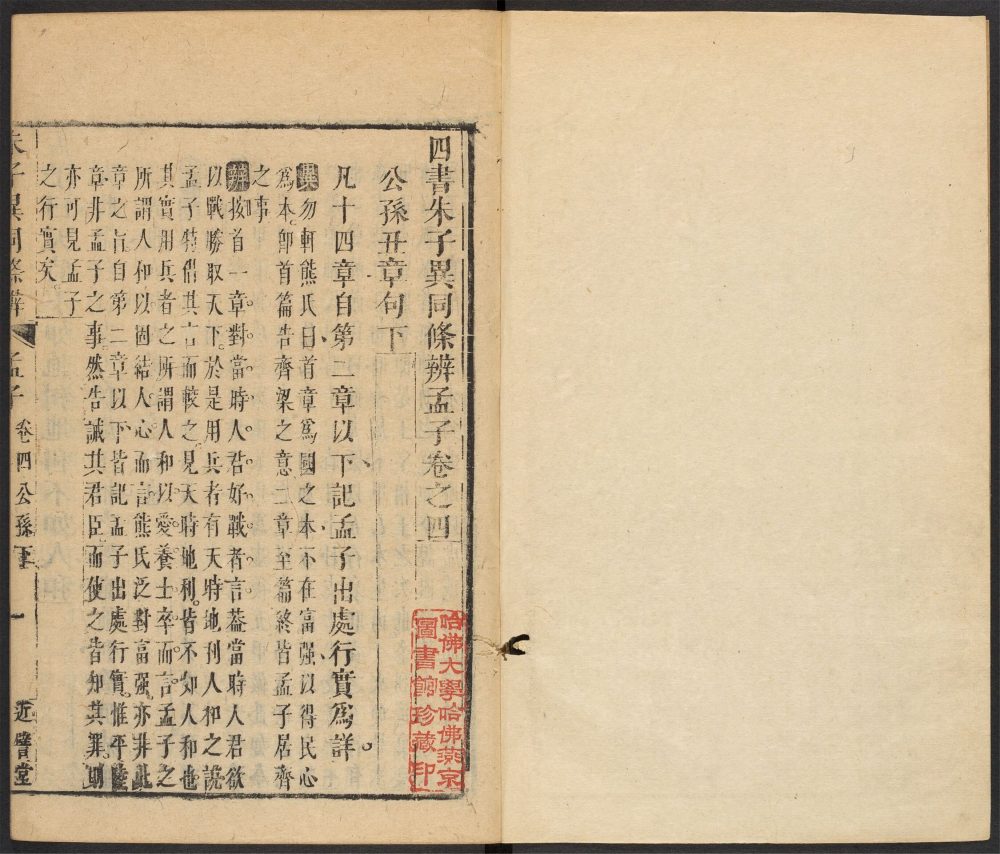 四書朱子異同條辨孟子卷之四
公孫丑章句下
凡十四章自第二章以下記孟子出處行實爲詳
異勿軒熊氏曰首章爲國之本不在富强以得民心
爲本卽首篇告齊梁之意二章至篇終皆孟子居齊
之事
辨按首一章對當時人君好戰者言葢當時人君欲
以戰勝取天下於是用兵者有天時地利人和之說
孟子特借其言而較之見天時地利皆不如人和也
其實用兵者之所謂人和以愛養士卒而言孟子之
所謂人和以固結人心而言熊氏泛對富强亦非此
章之旨自第二章以下皆記孟子出處行實惟平陸
章非孟子之事然告誡其君臣而使之皆知其罪則
亦可見孟子
之行實矣
朱子異同條辨 孟子 卷四公孫下 一 近譬堂
哈佛大學哈佛燕京
圖書館珍藏印